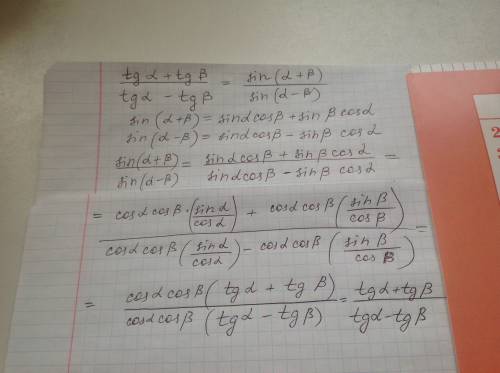 (tg α + tg β)/(tg α - tg β) = sin(α+β)/sin(α-β)
sin(α+β) = sinα cosβ + sin β cosα
sin(α-β) = sinα cosβ - sinβ cosα
sin(α+β)/sin(α-β) = (sinα cosβ + sinβ cosα)/(sinα cosβ - sinβ cosα) =
= (cosα cosβ · (sinα/cosα) + cosα cosβ (sinβ/cosβ))/(cosα cosβ (sinα/cosα) - cosα cosβ (sin β/cos β)) =
= (cosα cosβ (tg α + tg β))/(cosα cosβ (tg α - tg β)) = (tgα + tgβ)/(tgα - tgβ)
2